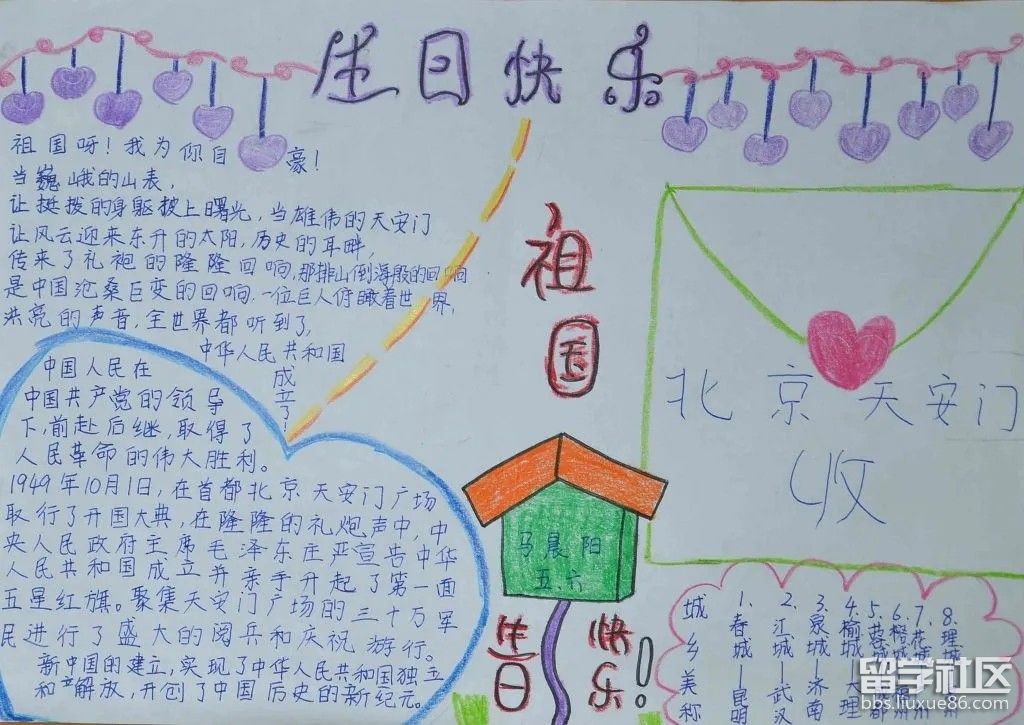 生日快乐
祖国呀！我为你自豪！
当巍峨的山表，
让挺拨的身躯披上曙光，当雄伟的天安门
让风云迎来东升的太阳，历史的耳畔，
传来了礼袍的隆隆回响，那排山倒海般的回响
是中国沧桑巨变的回响，一位巨人俯瞰着世界，
洪亮的声音，全世界都听到了，
中华人民共和国
成立了！
中国人民在
中国共产党的领导
下，前赴后继，取得了
人民革命的伟大胜利。
1949年10月1日，在首都北京天安门广场
取行了开国大典，在隆隆的礼炮声中，中
央人民政府主席毛泽东庄严宣告中华
人民共和国成立并亲手升起了第一面
五星红旗。聚集天安门广场的三十万军
民进行了盛大的阅兵和庆祝游行。
新中国的建立，实现了中华人民共和国独立
和解放，开创了中国历史的新纪元。
祖国
马晨阳
五六
生日
快乐！
北京天安门
收
城乡美称
1、春城—昆明
2、江城—武汉
3、泉城—济南
4、榆城—大理
5、蓉城
6、
7、花城
8、
留学社区
bbs.liuxue86.com